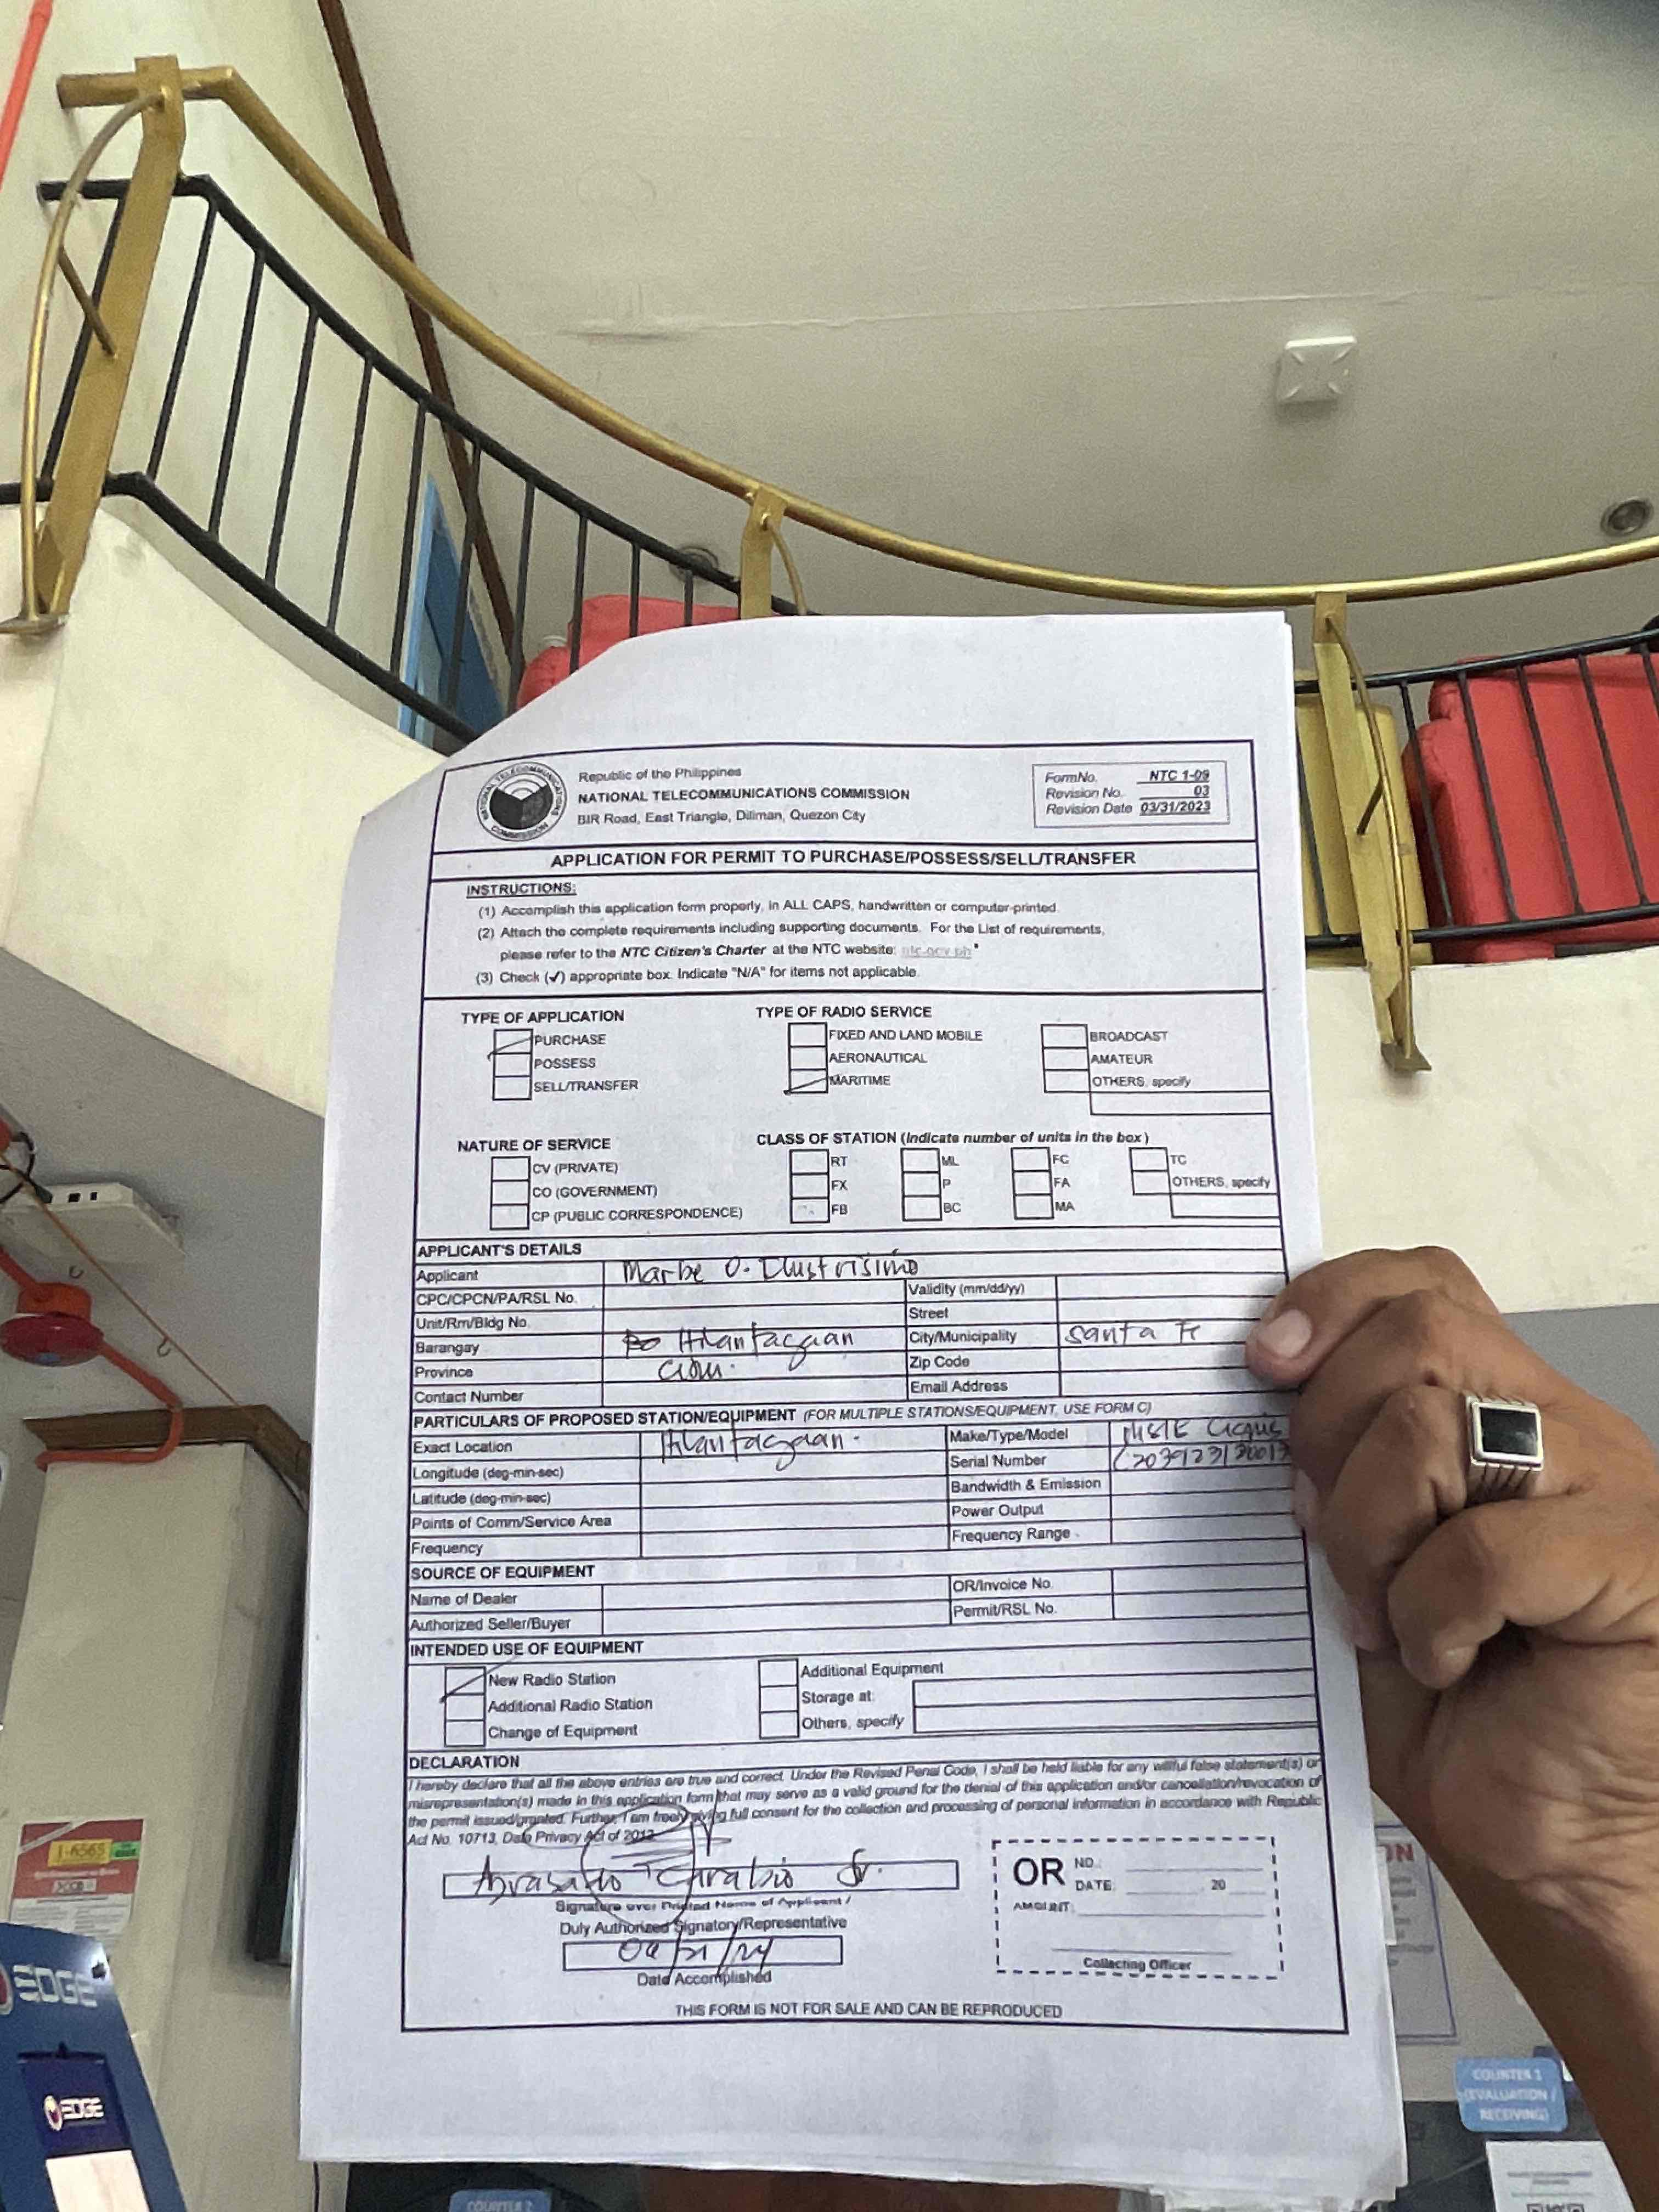 Republic of the Philippines
NATIONAL TELECOMMUNICATIONS COMMISSION
BIR Road, East Triangle, Diliman, Quezon City
FormNo. NTC 1-09
Revision No. 03
Revision Date 03/31/2023
NATIONAL TELECOMMUNICATIONS COMMISSION
APPLICATION FOR PERMIT TO PURCHASE/POSSESS/SELL/TRANSFER
INSTRUCTIONS:
(1) Accomplish this application form properly, in ALL CAPS, handwritten or computer-printed.
(2) Attach the complete requirements including supporting documents. For the List of requirements,
please refer to the NTC Citizen's Charter at the NTC website: ntc.gov.ph
(3) Check (✓) appropriate box. Indicate "N/A" for items not applicable.
TYPE OF APPLICATION
PURCHASE
POSSESS
SELL/TRANSFER
TYPE OF RADIO SERVICE
FIXED AND LAND MOBILE
AERONAUTICAL
MARITIME
BROADCAST
AMATEUR
OTHERS, specify
NATURE OF SERVICE
CV (PRIVATE)
CO (GOVERNMENT)
CP (PUBLIC CORRESPONDENCE)
CLASS OF STATION (Indicate number of units in the box)
RT ML FC TC
FX P FA OTHERS, specify
FB BC MA
APPLICANT'S DETAILS
Applicant Marbe O. Ilustrisimo
CPC/CPCN/PA/RSL No. Validity (mm/dd/yy)
Unit/Rm/Bldg No. Street
Barangay Hilantagaan City/Municipality Santa Fe
Province Zip Code
Contact Number Email Address
PARTICULARS OF PROPOSED STATION/EQUIPMENT (FOR MULTIPLE STATIONS/EQUIPMENT, USE FORM C)
Exact Location Hilantagaan. Make/Type/Model
Longitude (deg-min-sec) Serial Number
Latitude (deg-min-sec) Bandwidth & Emission
Points of Comm/Service Area Power Output
Frequency Frequency Range
SOURCE OF EQUIPMENT
Name of Dealer OR/Invoice No.
Authorized Seller/Buyer Permit/RSL No.
INTENDED USE OF EQUIPMENT
New Radio Station Additional Equipment
Additional Radio Station Storage at:
Change of Equipment Others, specify
DECLARATION
I hereby declare that all the above entries are true and correct. Under the Revised Penal Code, I shall be held liable for any willful false statement(s) or
misrepresentation(s) made in this application form that may serve as a valid ground for the denial of this application and/or cancellation/revocation of
the permit issued/granted. Further, I am freely giving full consent for the collection and processing of personal information in accordance with Republic
Act No. 10713, Data Privacy Act of 2012.
Jr.
Signature over Printed Name of Applicant /
Duly Authorized Signatory/Representative
Date Accomplished
OR NO.
DATE: 20
AMOUNT:
Collecting Officer
THIS FORM IS NOT FOR SALE AND CAN BE REPRODUCED
1-6565
EDGE
EDGE
COUNTER 1
(EVALUATION /
RECEIVING)
COUNTER 2